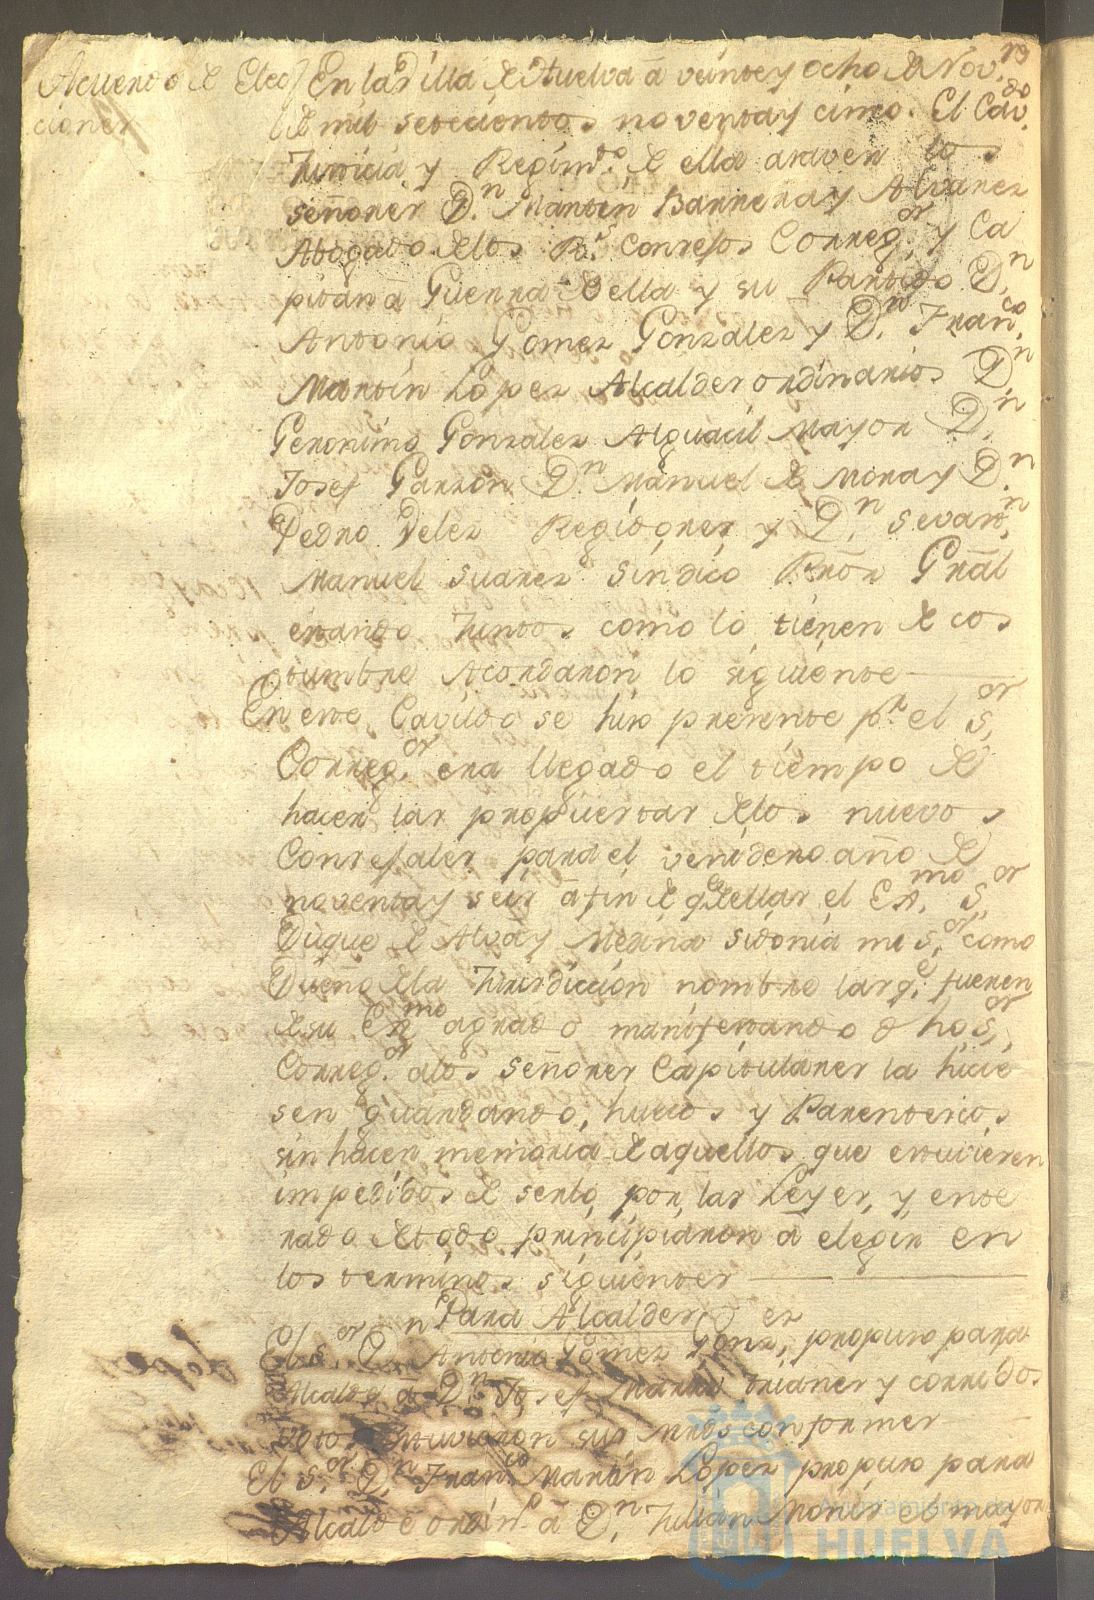 19
Acuerdo de Elec
ciones
En la Villa de Huelva â veinte y ocho de Nov.e
de mil setecientos noventa y cinco. El Cav.do
Justicia y Regim.to de ella asaver los
señores D.n Martin Barrera y Alvarez
Abogado delos R.s Consejos Correg.or y Ca
pitan â Guerra de ella y su Partido D.n
Antonio Gomez Gonzalez y D.n Fran.co
Martin Lopez Alcaldes ordinarios D.n
Geronimo Gonzalez Alguacil Mayor D.n
Josef Garzon D.n Manuel de Mora y D.n
Pedro Velez Regidores y D.n Sevast.n
Manuel Suarez Sindico Prôr Grâl
estando Juntos como lo tienen de cos
tumbre Acordaron lo siguiente
En este Cavildo se hizo presente p.r el S.or
Correg.or era llegado el tiempo de
hacer las propuestas delos nuevos
Consejales para el venidero año de
noventa y seis â fin de q.e de ellas el Ex.mo S.or
Duque de Alva y Medina Sidonia mi S.or como
Dueño dela Jurisdiccion nombre las q.e fueren
de su Ex.mo agrado manifestando dho S.or
Correg.or alos señores Capitulares la hicie
sen guardando, huecos y Parentescos
sin hacer memoria de aquellos que estuvieren
impedidos de serlo, por las Leyes, y ente
rado de todo principiaron a elegir en
los terminos siguientes
Para Alcaldes
El S.or D.n Antonio Gomez Gonz.ez propuso para
Alcalde a D.n Josef Maria Trianes y corridos
votos estuvieron sus mrds conformes
El S.or D.n Fran.co Martin Lopez propuso para
Alcalde ordin.o â D.n Julian Monis el mayor
Ayuntamiento de
HUELVA